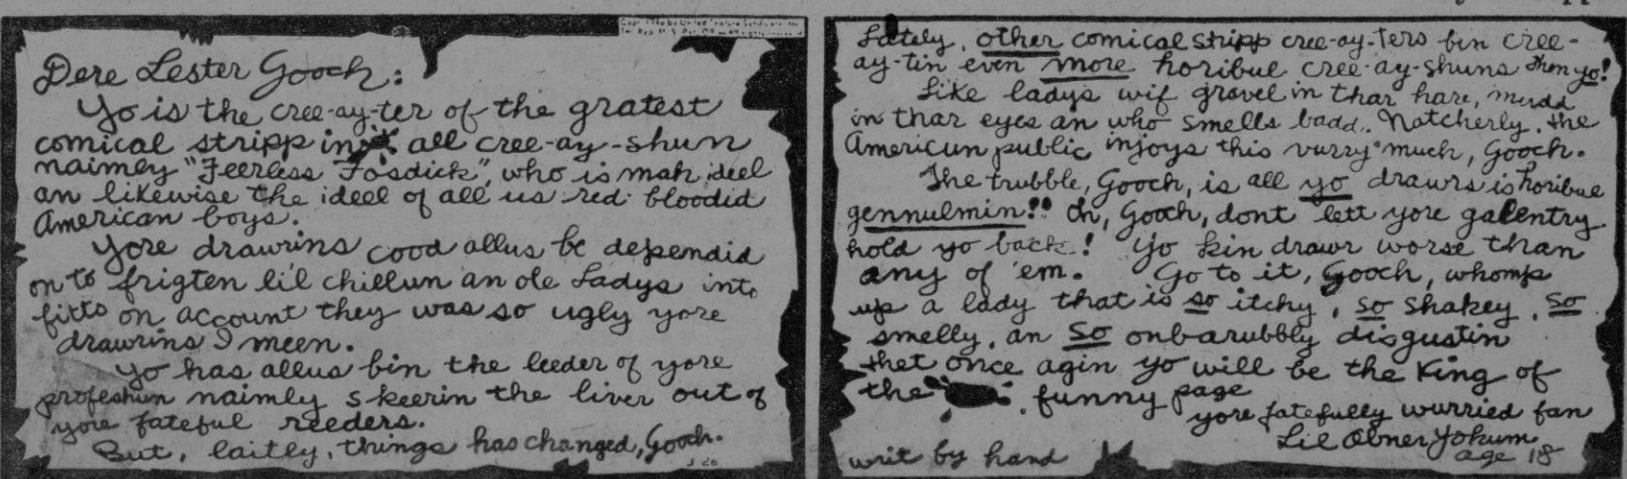 Dere Lester Gooch:
Yo is the cree-ay-ter of the gratest
comical stripp in all cree-ay-shun
naimley "Feerless Fosdick", who is mah ideel
an likewise the ideel of all us red bloodid
American boys.
Yore drawrins cood allus be dependid
on to frigten li'l chillun an ole ladys into
fitts on account they was so ugly yore
drawrins I meen.
Yo has allus bin the leeder of yore
profeshun naimly skeerin the liver out of
yore fateful reeders.
But, laitly, things has changed, Gooch.
3 26
Lately, other comical stripp cree-ay-ters bin cree-
ay-tin even more horibul cree-ay-shuns then yo!
Like ladys wif gravel in thar hare, mudd
in thar eyes an who smells badd.. Natcherly, the
Americun public injoys this vurry much, Gooch.
The trubble, Gooch, is all yo drawrs is horibue
gennulmin!! Oh, Gooch, dont lett yore galentry
hold yo back! Yo kin drawr worse than
any of 'em. Go to it, Gooch, whomp
up a lady that is so itchy, so shakey, so
smelly, an so onbarubbly disgustin
thet once agin yo will be the King of
the funny page
yore fatefully wurried fan
Lil Abner Yokum
age 18
writ by hand